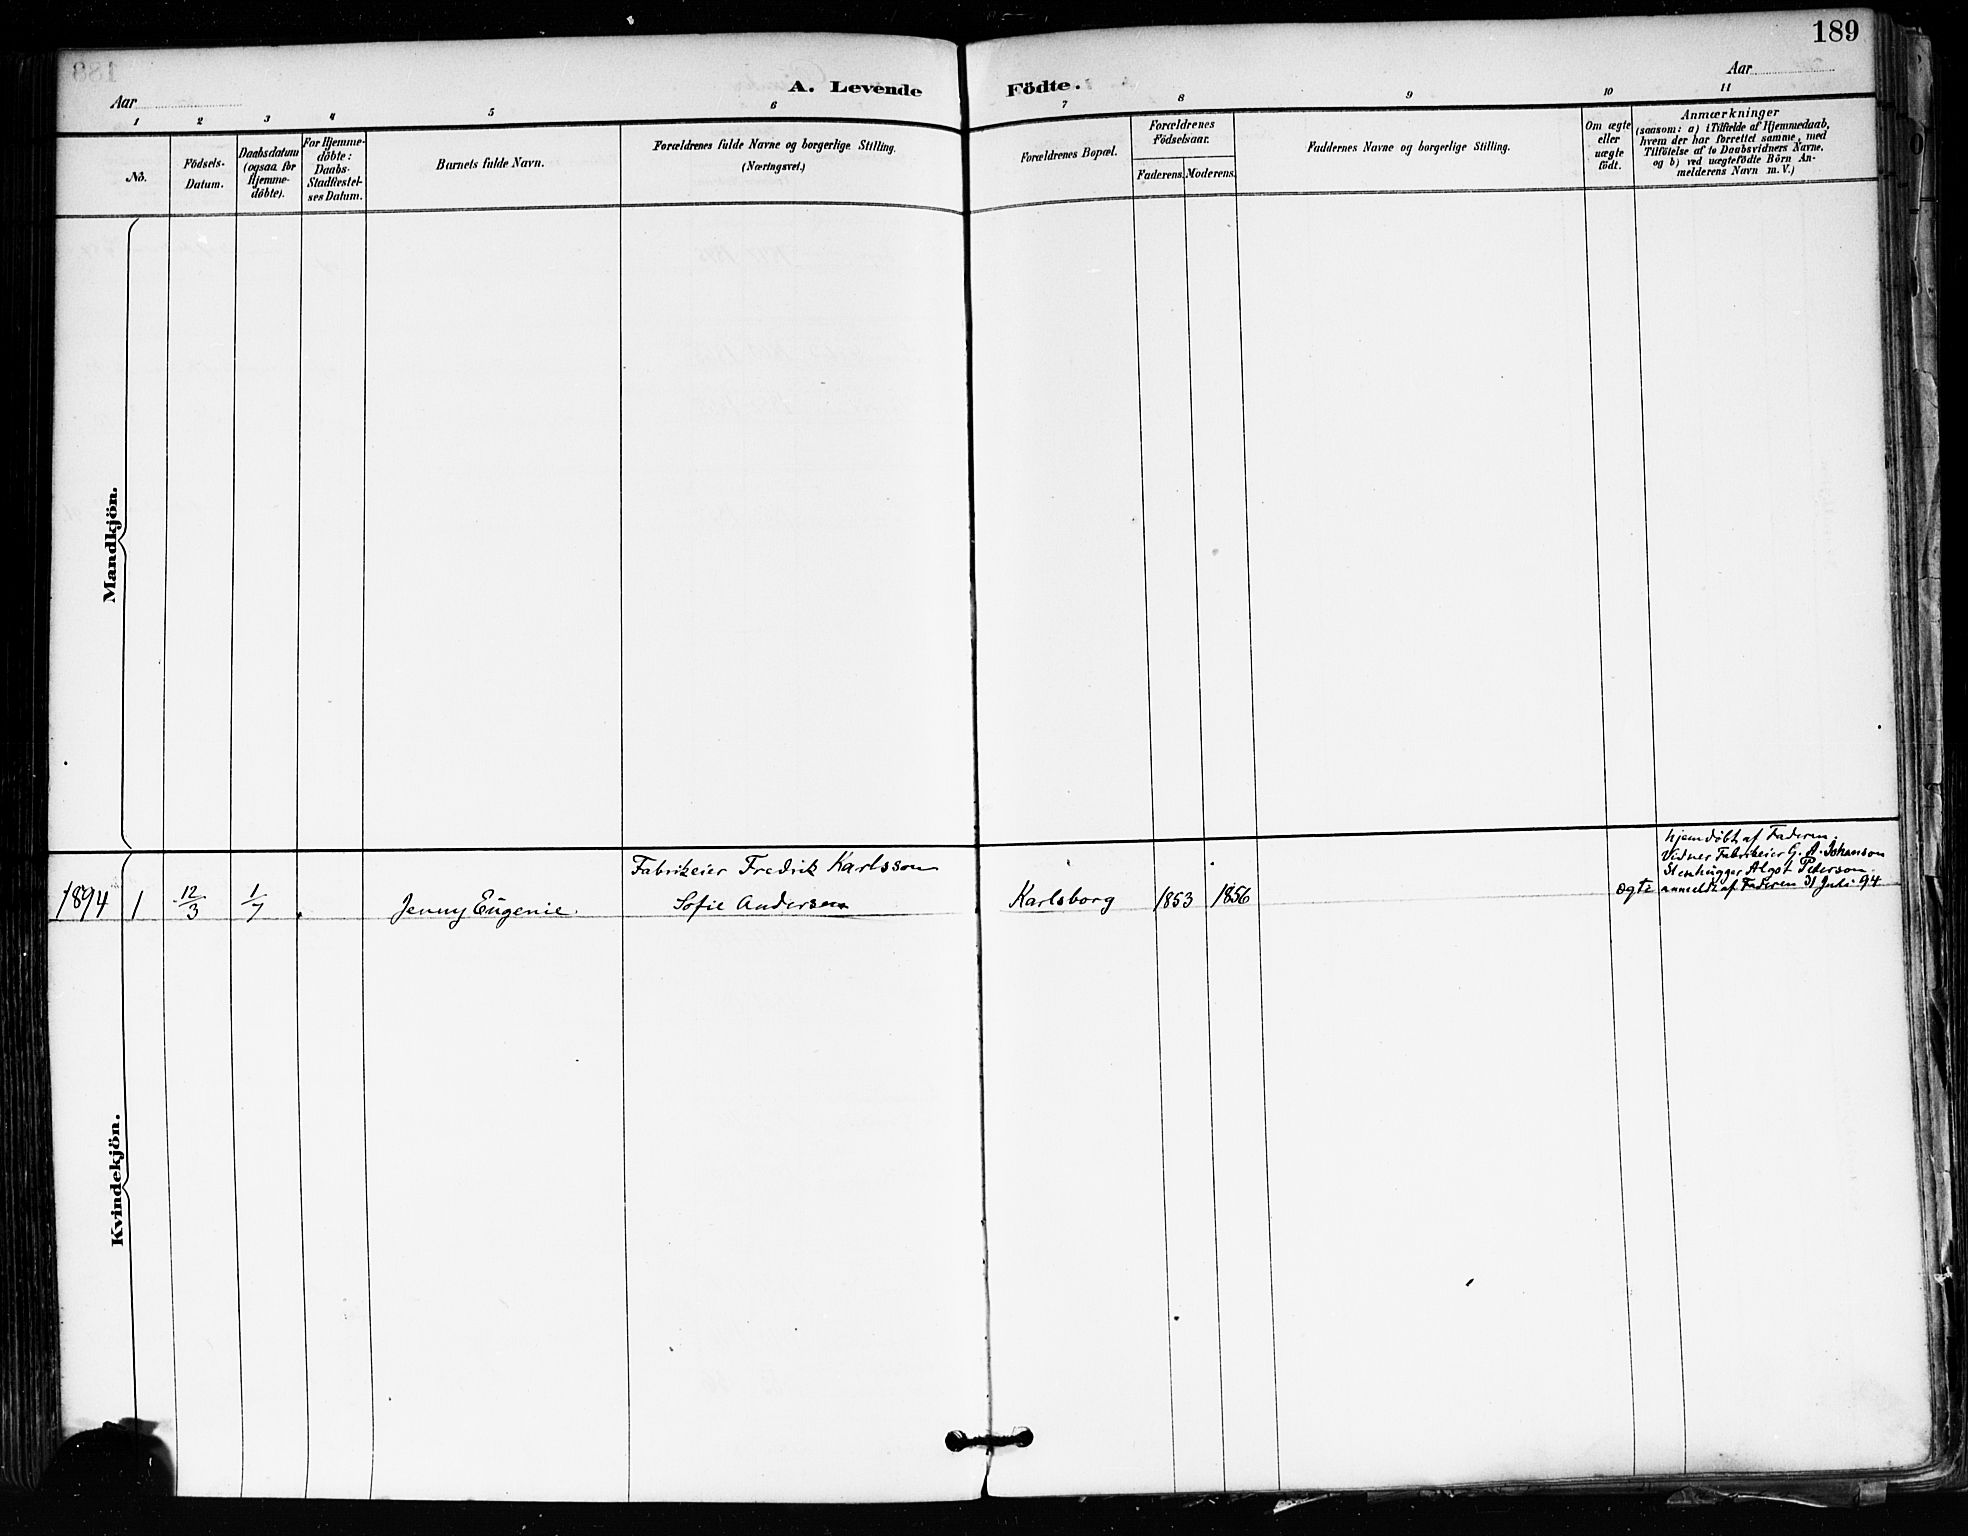 189
Aar
A. Levende Födte.
Aar
1 2 3 4 5 6 7 8 9 10 11
No.
Födsels-
Datum.
Daabsdatum
(ogsaa for
Hjemme-
döbte).
For Hjemme-
döbte:
Daabs-
Stadfæstel-
ses Datum.
Barnets fulde Navn.
Forældrenes fulde Navne og borgerlige Stilling.
(Næringsvei.)
Forældrenes Bopæl.
Forældrenes
Födselsaar.
Faderens. Moderens.
Faddernes Navne og borgerlige Stilling.
Om ægte
eller
uægte
født.
Anmærkninger
(saasom: a) i Tilfælde af Hjemmedaab,
hvem der har forrettet samme, med
Tilföielse af to Daabsvidners Navne,
og b) ved uægtefödte Börn An-
melderens Navn m. V.)
Mandkjön.
Kvindekjön.
1894 1 12/3 1/7 Jenny Eugenie.
Fabrikeier Fredrik Karlsson
Sofie Andersen
Karlsborg 1853 1856
ægte
hjemdöbt af Faderen.
Vidner Fabrikeier G. A. Johanson
Stenhugger Algot Peterson
anmeldt af Faderen 31 Juli 94